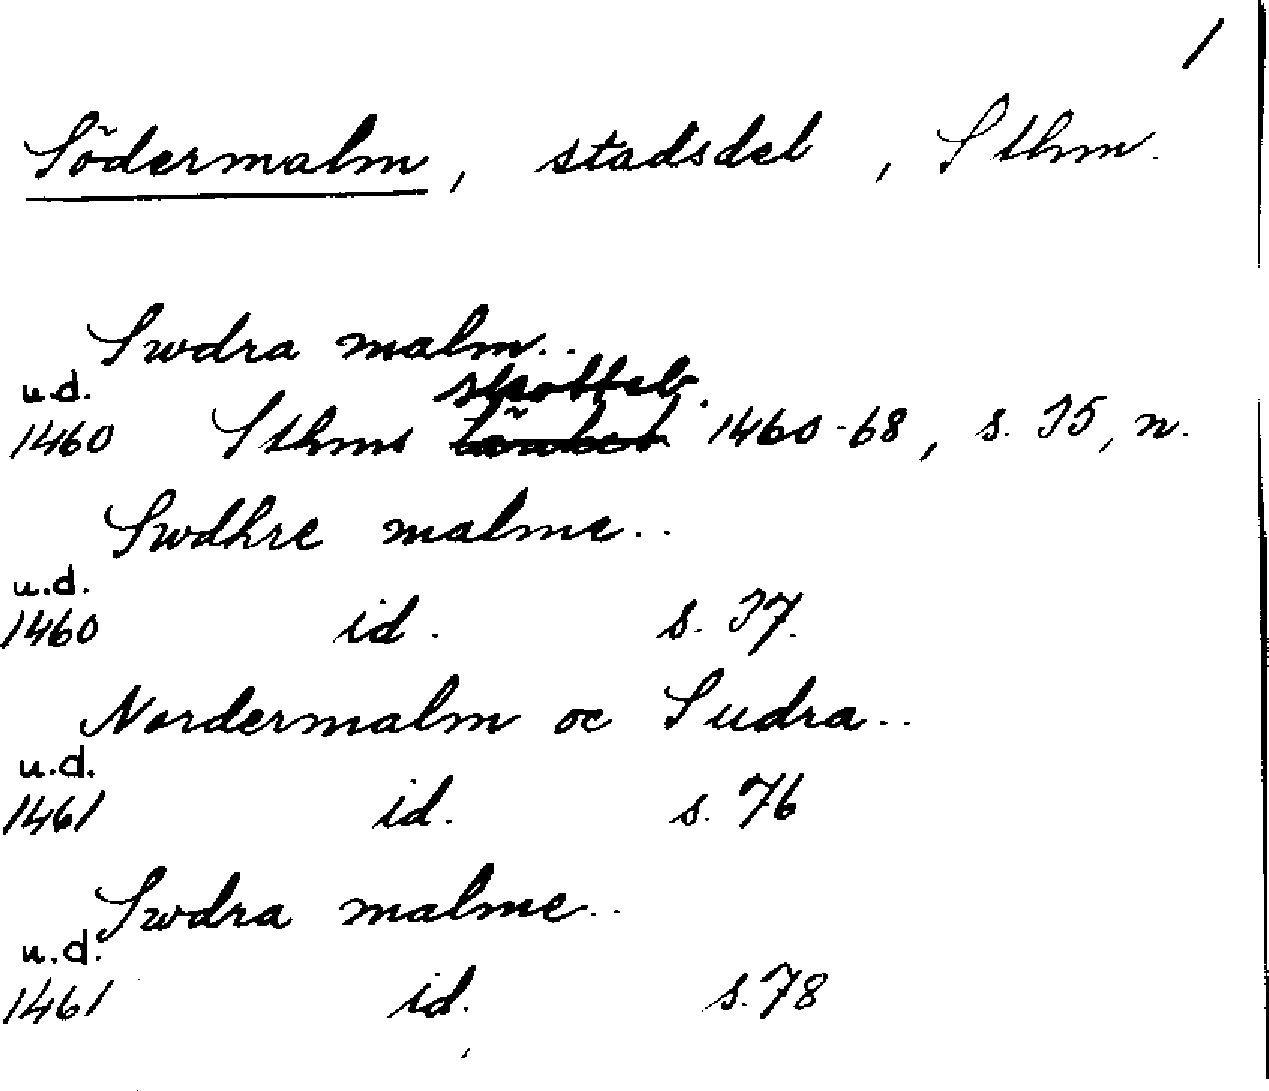 1
Södermalm, stadsdel, Sthm.
Swdra malm..
u.d. skotteb.
1460 Sthms 1460-68, s. 35, n.
Swdhre malme..
u.d.
1460 id. s. 37.
Nordermalm oc Sudra..
u.d.
1461 id. s. 76
Swdra malme..
u.d.
1461 id. s. 78